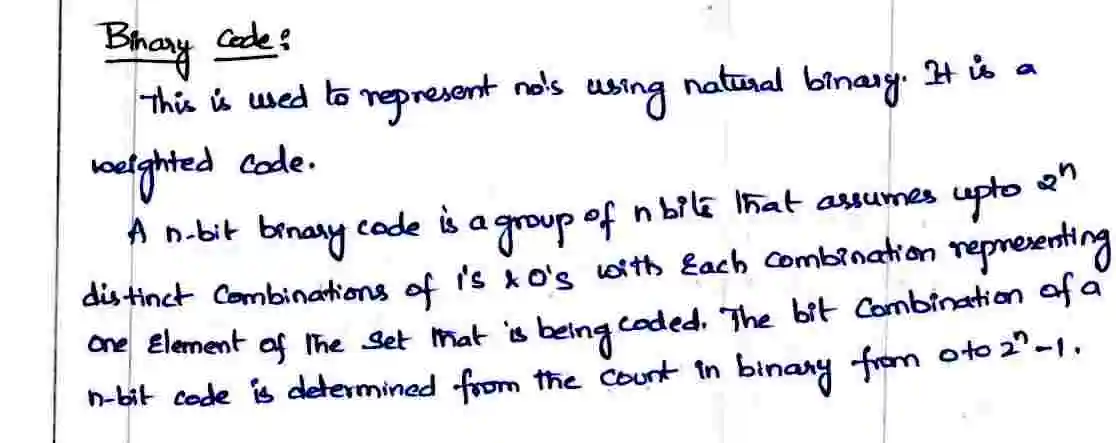 Binary Code:
This is used to represent no's using natural binary. It is a
weighted code.
A n-bit binary code is a group of n bits that assumes upto 2ⁿ
distinct combinations of 1's & 0's with Each combination representing
one Element of the set that is being coded. The bit combination of a
n-bit code is determined from the count in binary from 0 to 2ⁿ-1.